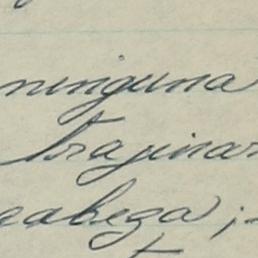 ninguna
trajinar
cabeza;